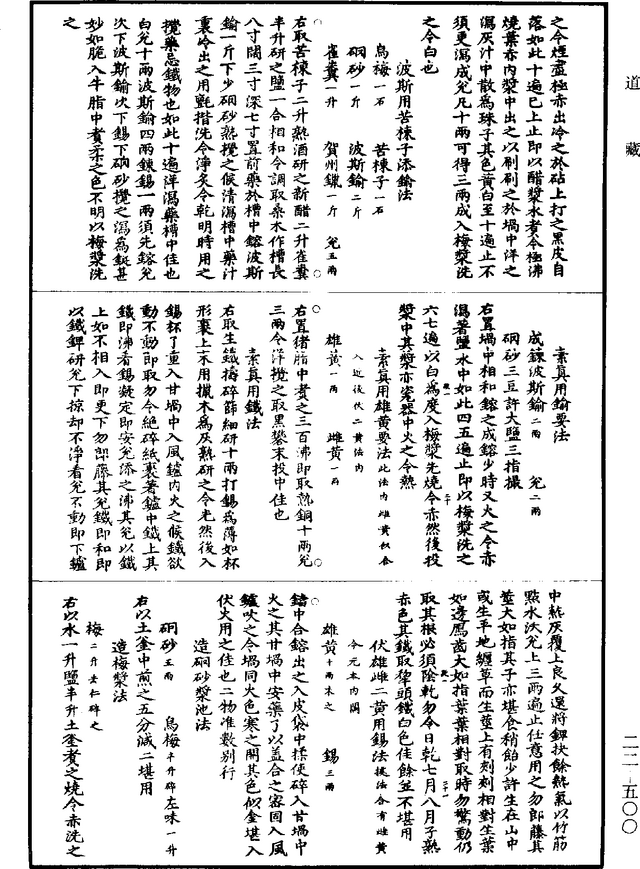 道藏
二二—五〇〇
之令煙盡極赤出冷之於砧上打之黑皮自
落如此十遍已上止即以醋漿水煮令極沸
燒葉赤內漿中出之以刷刷之於堝中洋之
瀉灰汁中散為珠子其色黃白至十遍止不
須更瀉成兊凡十兩可得三兩成入梅漿洗
之令白也
波斯用苦楝子添鍮法
烏梅一石 苦楝子一石
硇砂一斤 波斯鍮二斤
雀糞一升 賀州鑞一斤 兊五兩
右取苦楝子二升熟酒研之新醋二升雀糞
半升研之鹽一合相和令調取桑木作槽長
八寸闊三寸深七寸置前藥於槽中鎔波斯
鍮一斤下少硇砂熟攪之候清瀉槽中藥汁
裏冷出之用氈揩洗令淨炙令乾明時用之
攪藥忌鐵物也如此十遍洋瀉藥槽中佳也
白兊十兩波斯鍮四兩鍊錫一兩須先鎔兊
次下波斯鍮次下錫下硇砂攪之瀉為鋌甚
妙如脆入牛脂中煮柔之色不明以梅漿洗
之
素真用鍮要法
成鍊波斯鍮二兩 兊二兩
硇砂三豆許大鹽三指撮
右置堝中相和鎔之成鎔少時又火之令赤
瀉著鹽水中如此四五遍止即以梅漿洗之
六七遍以白為度入梅漿先燒令赤然後投
漿中其漿亦瓷器中火之令熱
素真用雄黃要法此法內雌黃似合
入近後伏二黃法內
雄黃一兩 雌黃一兩
右置猪脂中煮之三百沸即取熟銅十兩兊
三兩令洋攪之取黑礬末投中佳也
素真用鐵法
右取生鐵擣碎篩細研十兩打錫為薄如杯
形裹上不用攊木為灰熟研之令光然後入
錫杯了重入甘堝中入風鑪內火之候鐵欲
動不動即取勿令絕碎紙裹著鑪中鐵上其
鐵即沸看錫凝定即安兊添之沸其兊以鐵
上如不相入即更下勿即藤其兊鐵即和即
以鐵鉀研兊下掠却不淨看兊不動即下鑪
中熱灰覆上良久還將鉀抉餘熱氣以竹筋
點水沃兊上三兩遍止任意用之勿即藤其
莖大如指其子亦堪食稍飴少許生在山中
或生平地纏草而生莖上有刻刻相對生葉
如邊馬齒大如指葉葉相對取時勿驚動仍
取其根必須陰乾勿令日乾七月八月子熟
赤色其鐵取犂頭鐵白色佳餘並不堪用
伏雄雌二黃用錫法挾法合有雌黃
今元本內闕
雄黃十兩末之 錫三兩
鐺中合鎔出之入皮袋中揉使碎入甘堝中
火之其甘堝中安藥了以蓋合之密固入風
鑪吹之令堝同火色寒之開其色似金堪入
伏火用之佳也二物准數別行
造硇砂漿池法
硇砂五兩 烏梅半升碎左味一升
右以土釜中煎之五分減二堪用
造梅漿法
梅二升去仁碎之
右以水一升鹽半升土釜煮之燒令赤洗之